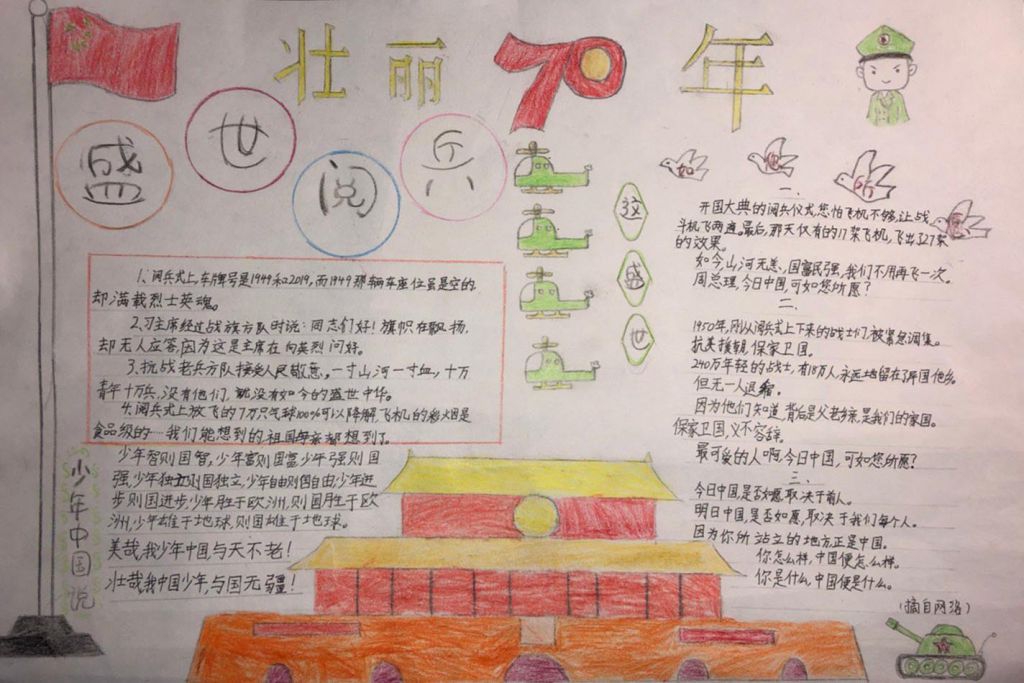 壮丽70年
盛世阅兵
1、阅兵式上,车牌号是1949和2019,而1949那辆车座位虽是空的
却满载烈士英魂。
2、习主席经过战旗方队时说:同志们好!旗帜在飘扬,
却无人应答,因为这是主席在向英烈问好。
3、抗战老兵方队接受人民敬意。一寸山河一寸血,十万
青年十万兵,没有他们,就没有如今的盛世中华。
4、阅兵式上放飞的7万只气球100%可以降解,飞机的彩烟是
食品级的……我们能想到的,祖国母亲都想到了。
少年中国说
少年智则国智,少年富则国富,少年强则国
强,少年独立则国独立,少年自由则国自由,少年进
步则国进步,少年胜于欧洲,则国胜于欧
洲,少年雄于地球,则国雄于地球。
美哉,我少年中国与天不老!
壮哉,我中国少年,与国无疆!
这盛世
如您所愿
一、
开国大典的阅兵仪式,您怕飞机不够,让战
斗机飞两遍。最后,那天仅有的17架飞机,飞出了27架
的效果。
如今,山河无恙,国富民强,我们不用再飞一次。
周总理,今日中国,可如您所愿?
二、
1950年,刚从阅兵式上下来的战士们,被紧急调集。
抗美援朝,保家卫国。
240万年轻的战士,有18万人,永远地留在了异国他乡。
但无一人退缩。
因为他们知道,背后是父老乡亲,是我们的家国。
保家卫国,义不容辞。
最可爱的人啊,今日中国,可如您所愿?
三、
今日中国,是否如愿,取决于前人。
明日中国,是否如愿,取决于我们每个人。
因为你所站立的地方正是中国。
你怎么样,中国便怎么样。
你是什么,中国便是什么。
(摘自网络)